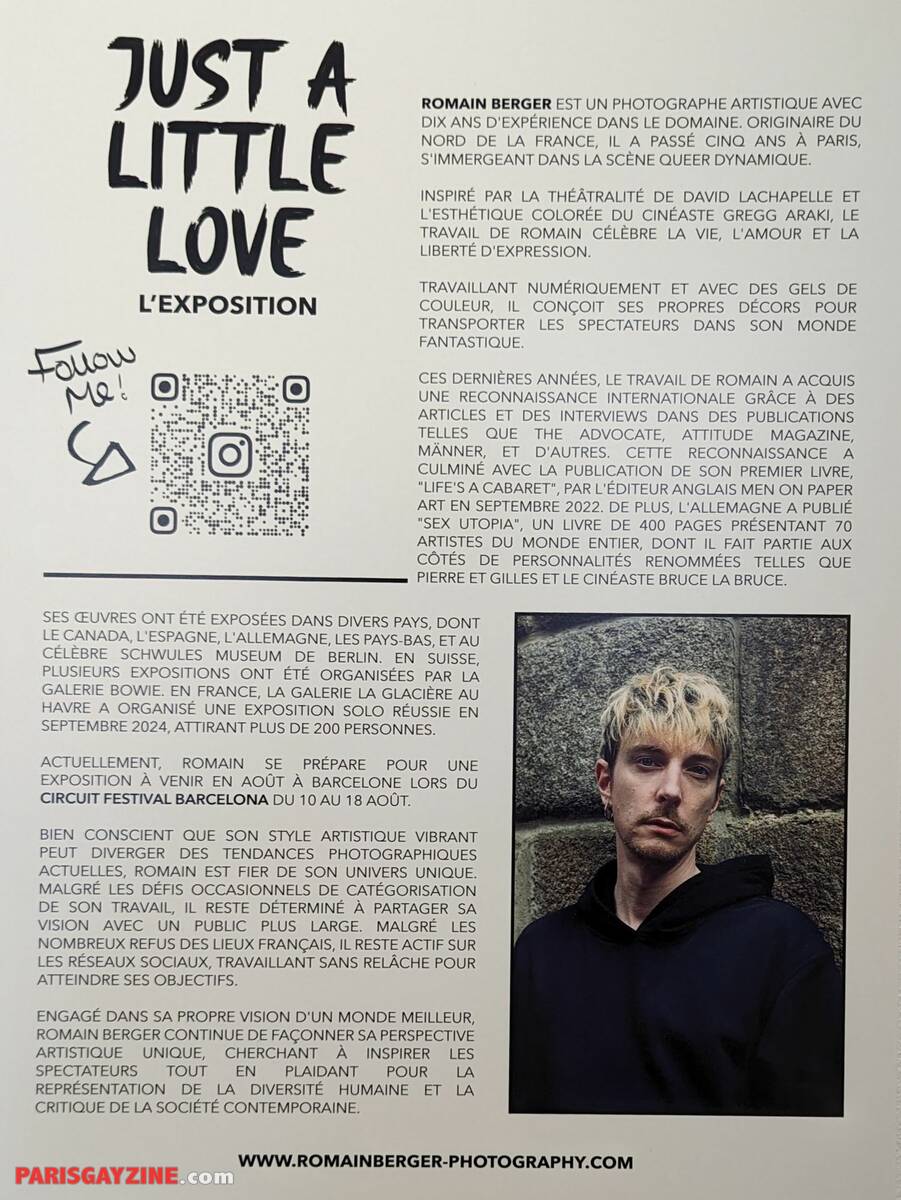 JUST A
LITTLE
LOVE
L'EXPOSITION
Follow
Me!
ROMAIN BERGER EST UN PHOTOGRAPHE ARTISTIQUE AVEC
DIX ANS D'EXPÉRIENCE DANS LE DOMAINE. ORIGINAIRE DU
NORD DE LA FRANCE, IL A PASSÉ CINQ ANS À PARIS,
S'IMMERGEANT DANS LA SCÈNE QUEER DYNAMIQUE.
INSPIRÉ PAR LA THÉÂTRALITÉ DE DAVID LACHAPELLE ET
L'ESTHÉTIQUE COLORÉE DU CINÉASTE GREGG ARAKI, LE
TRAVAIL DE ROMAIN CÉLÈBRE LA VIE, L'AMOUR ET LA
LIBERTÉ D'EXPRESSION.
TRAVAILLANT NUMÉRIQUEMENT ET AVEC DES GELS DE
COULEUR, IL CONÇOIT SES PROPRES DÉCORS POUR
TRANSPORTER LES SPECTATEURS DANS SON MONDE
FANTASTIQUE.
CES DERNIÈRES ANNÉES, LE TRAVAIL DE ROMAIN A ACQUIS
UNE RECONNAISSANCE INTERNATIONALE GRÂCE À DES
ARTICLES ET DES INTERVIEWS DANS DES PUBLICATIONS
TELLES QUE THE ADVOCATE, ATTITUDE MAGAZINE,
MÄNNER, ET D'AUTRES. CETTE RECONNAISSANCE A
CULMINÉ AVEC LA PUBLICATION DE SON PREMIER LIVRE,
"LIFE'S A CABARET", PAR L'ÉDITEUR ANGLAIS MEN ON PAPER
ART EN SEPTEMBRE 2022. DE PLUS, L'ALLEMAGNE A PUBLIÉ
"SEX UTOPIA", UN LIVRE DE 400 PAGES PRÉSENTANT 70
ARTISTES DU MONDE ENTIER, DONT IL FAIT PARTIE AUX
CÔTÉS DE PERSONNALITÉS RENOMMÉES TELLES QUE
PIERRE ET GILLES ET LE CINÉASTE BRUCE LA BRUCE.
SES ŒUVRES ONT ÉTÉ EXPOSÉES DANS DIVERS PAYS, DONT
LE CANADA, L'ESPAGNE, L'ALLEMAGNE, LES PAYS-BAS, ET AU
CÉLÈBRE SCHWULES MUSEUM DE BERLIN. EN SUISSE,
PLUSIEURS EXPOSITIONS ONT ÉTÉ ORGANISÉES PAR LA
GALERIE BOWIE. EN FRANCE, LA GALERIE LA GLACIÈRE AU
HAVRE A ORGANISÉ UNE EXPOSITION SOLO RÉUSSIE EN
SEPTEMBRE 2024, ATTIRANT PLUS DE 200 PERSONNES.
ACTUELLEMENT, ROMAIN SE PRÉPARE POUR UNE
EXPOSITION À VENIR EN AOÛT À BARCELONE LORS DU
CIRCUIT FESTIVAL BARCELONA DU 10 AU 18 AOÛT.
BIEN CONSCIENT QUE SON STYLE ARTISTIQUE VIBRANT
PEUT DIVERGER DES TENDANCES PHOTOGRAPHIQUES
ACTUELLES, ROMAIN EST FIER DE SON UNIVERS UNIQUE.
MALGRÉ LES DÉFIS OCCASIONNELS DE CATÉGORISATION
DE SON TRAVAIL, IL RESTE DÉTERMINÉ À PARTAGER SA
VISION AVEC UN PUBLIC PLUS LARGE. MALGRÉ LES
NOMBREUX REFUS DES LIEUX FRANÇAIS, IL RESTE ACTIF SUR
LES RÉSEAUX SOCIAUX, TRAVAILLANT SANS RELÂCHE POUR
ATTEINDRE SES OBJECTIFS.
ENGAGÉ DANS SA PROPRE VISION D'UN MONDE MEILLEUR,
ROMAIN BERGER CONTINUE DE FAÇONNER SA PERSPECTIVE
ARTISTIQUE UNIQUE, CHERCHANT À INSPIRER LES
SPECTATEURS TOUT EN PLAIDANT POUR LA
REPRÉSENTATION DE LA DIVERSITÉ HUMAINE ET LA
CRITIQUE DE LA SOCIÉTÉ CONTEMPORAINE.
WWW.ROMAINBERGER-PHOTOGRAPHY.COM
PARISGAYZINE.com